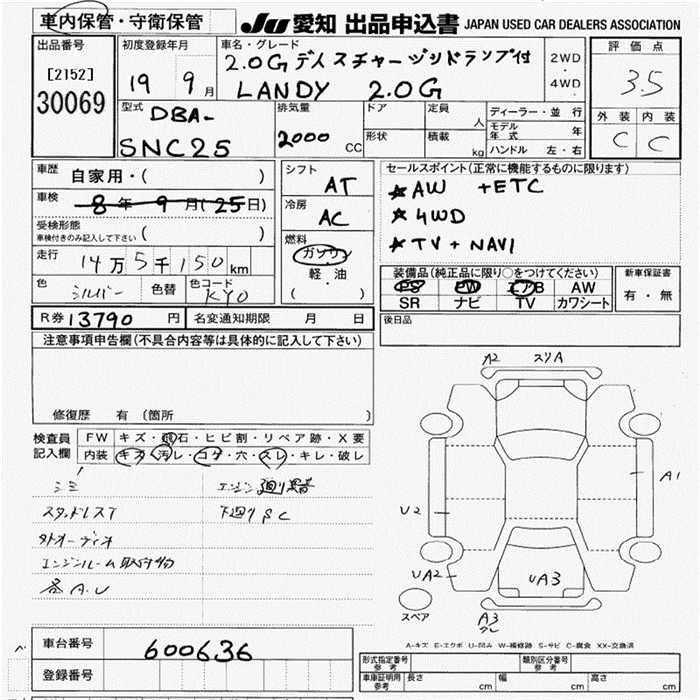 車内保管・守衛保管
JU 愛知 出品申込書 JAPAN USED CAR DEALERS ASSOCIATION
出品番号
[2152]
30069
初度登録年月
19 9月
車名・グレード
2.0G ディスチャージッドランプ付
LANDY 2.0G
2WD
・
4WD
評価点
3.5
外装 内装
C C
型式
DBA-
SNC25
排気量
2000 CC
ドア
形状
定員 人
積載 kg
ディーラー・並行
モデル年式 年
ハンドル 左・右
車歴 自家用・( )
車検 8年9月(25日)
受検形態
車検付きのみ記入して下さい ( )
走行 14万5千150km
色 シルバー 色替 色コード KYO
シフト AT
冷房 AC
燃料
ガソリン
軽・油
( )
セールスポイント(正常に機能するものに限ります)
★AW +ETC
★4WD
★TV+NAVI
装備品(純正品に限り○をつけてください)
PS PW エアB AW
SR ナビ TV カワシート
新車保証書
有・無
R券 13790円 名変通知期限 月 日
後日品
注意事項申告欄(不具合内容等は具体的に記入して下さい)
修復歴 有 (箇所 )
検査員記入欄
FW キズ・飛石・ヒビ割・リペア跡・X要
内装 キズ・汚レ・コゲ・穴・スレ・キレ・破レ
シミ
スタッドレスT
外オーディオ
エンジンルーム取付物
各A.U
下廻りSC
A2 スリA
A1
U2
UA2
UA3
A3
スペア
A-キズ E-エクボ U-凹み W-補修跡 S-サビ C-腐食 XX-交換済
車台番号 600636
登録番号
形式指定番号 参考
類別区分番号 参考
車庫証明用 参考
長さ cm 幅 cm 高さ cm